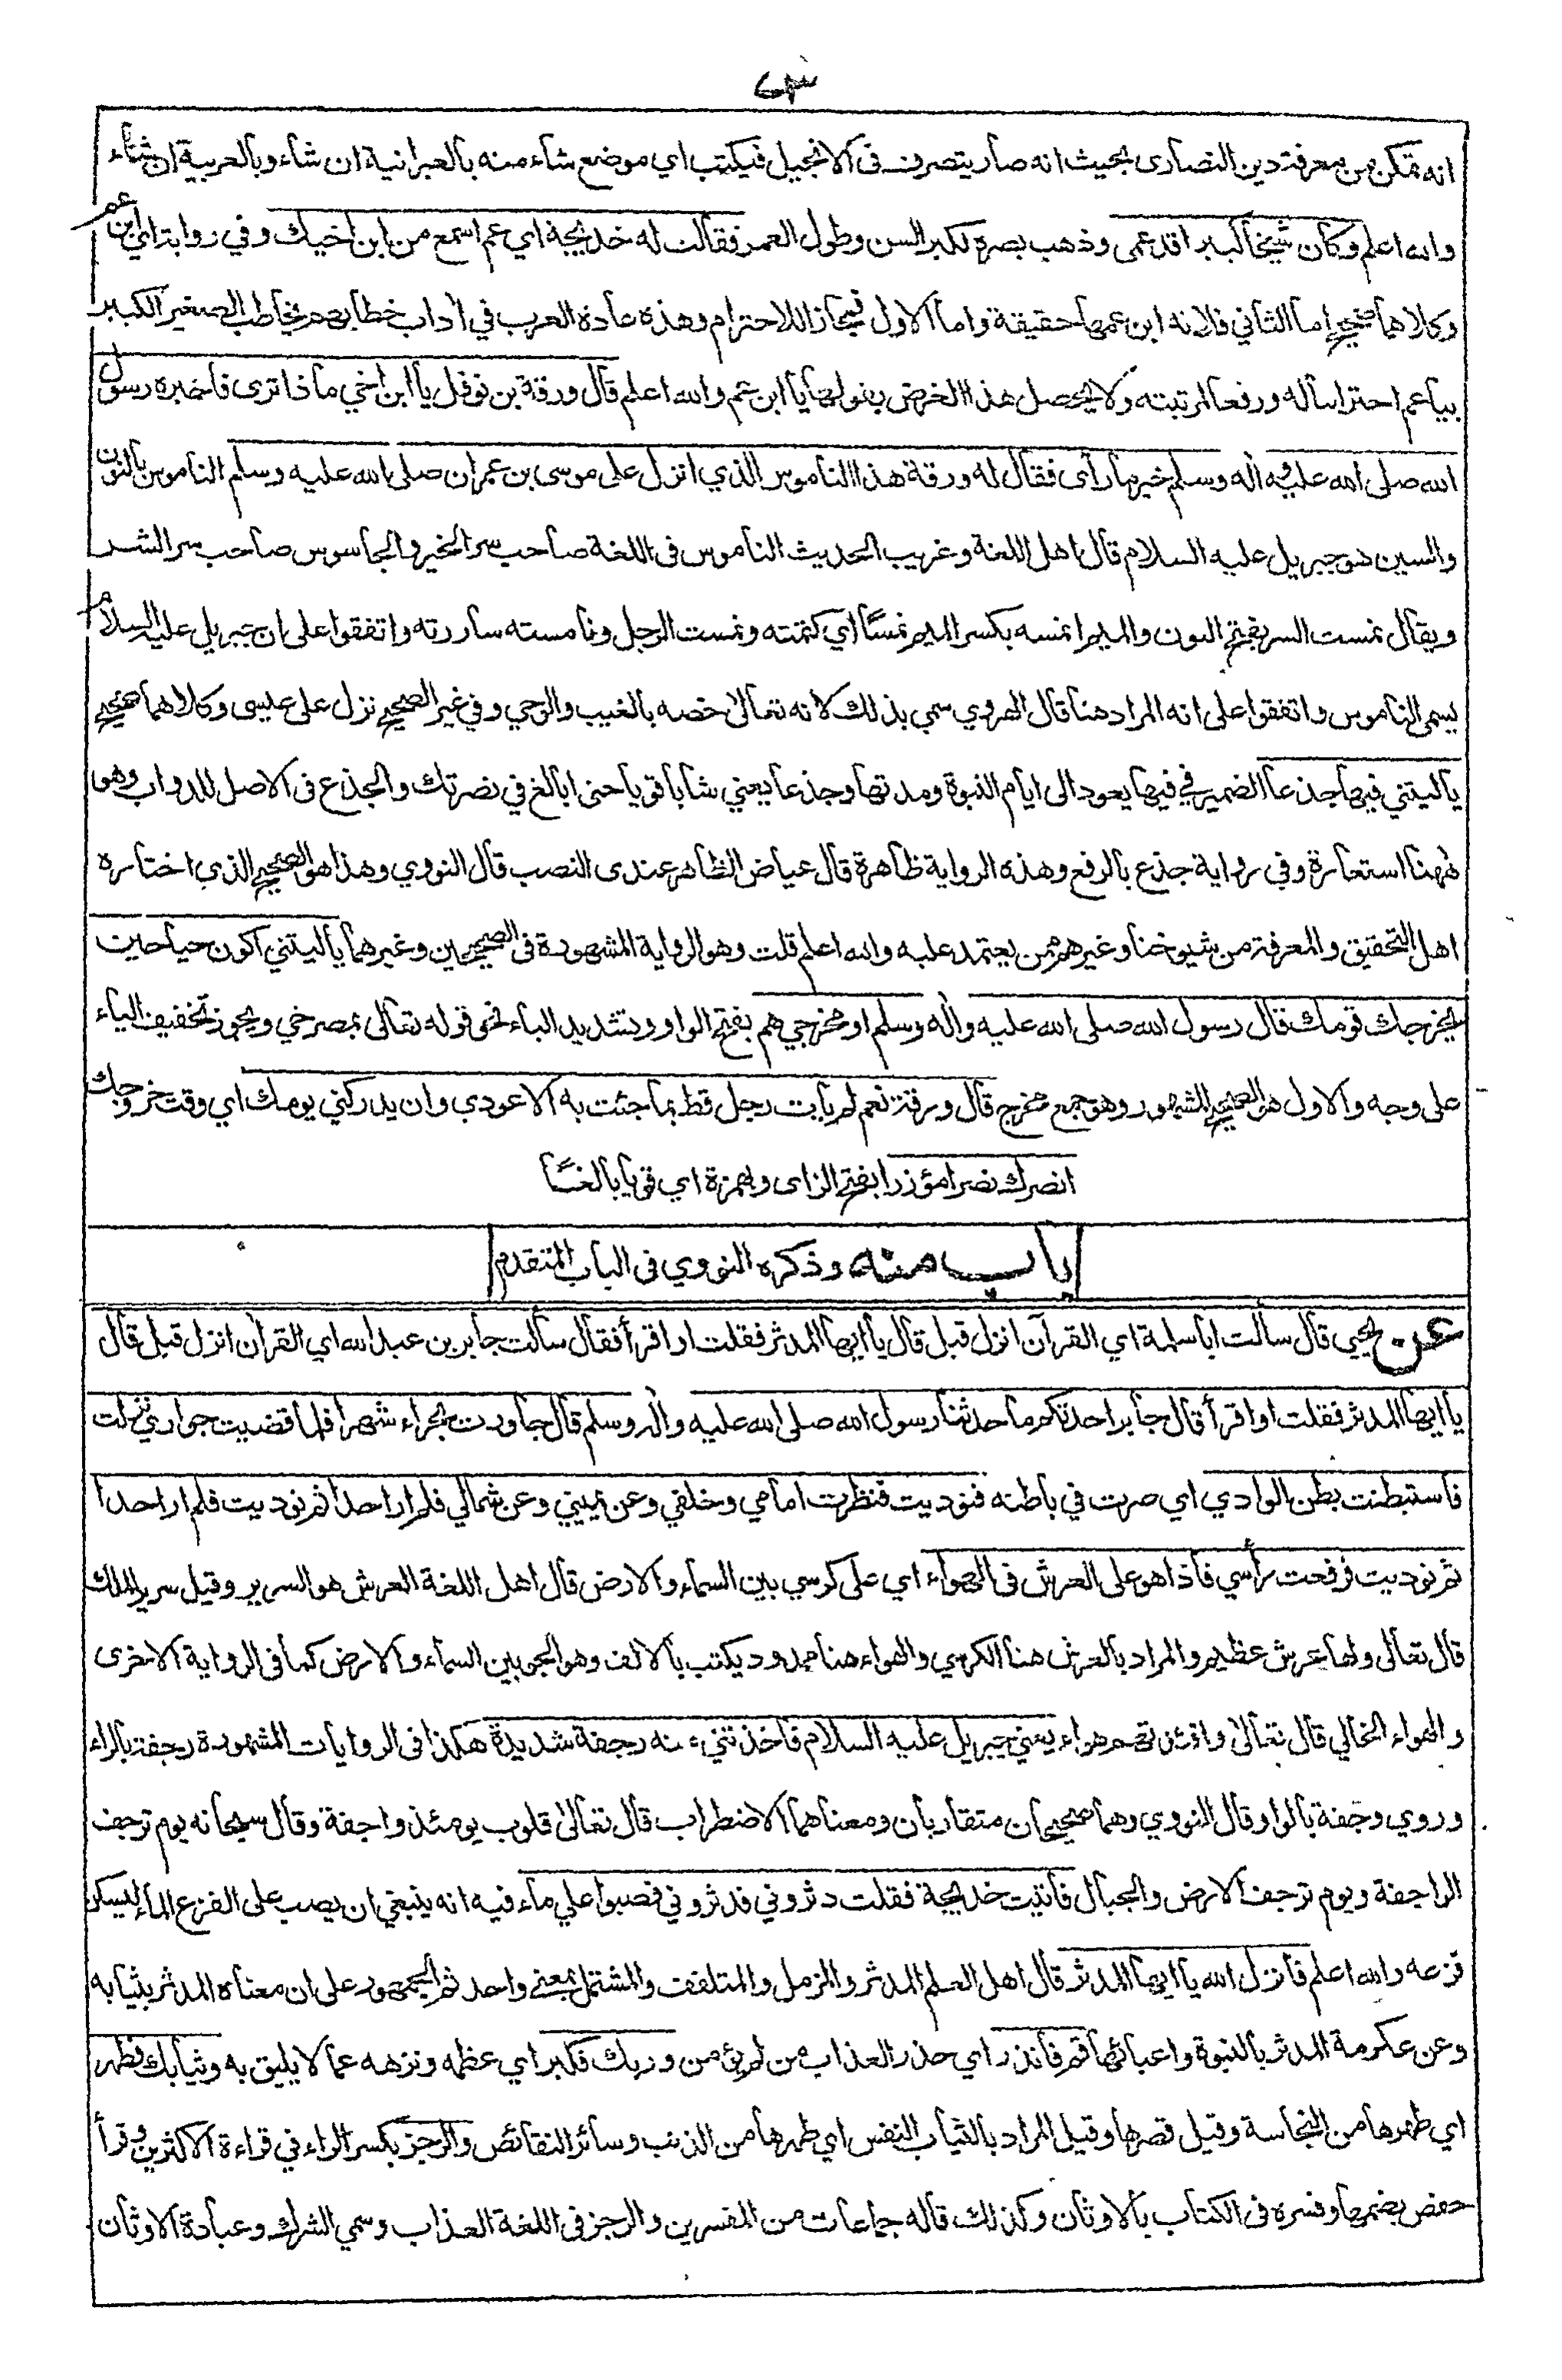 ٧٣
انه تمكن من معرفة دين النصارى بحيث انه صار يتصرف فى الانجيل فيكتب اي موضع شاء منه بالعبرانية ان شاء وبالعربية ان شاء
والله اعلم وكان شيخا كبيرا قد عمى وذهب بصره لكبر السن وطول العمر فقالت له خديجة اي عم اسمع من ابن اخيك وفي رواية اي ابن عم
وكلاهما صحيح اما الثاني فلانه ابن عمها حقيقة واما الاول فمجاز اللاحترام وهذه عادة العرب في آداب خطابهم يخاطب الصغير الكبير
بيا عم احتراما له ورفعا لمرتبته ولا يحصل هذا الغرض بقولها يا ابن عم والله اعلم قال ورقة بن نوفل يا ابن اخي ماذا ترى فاخبره رسول
الله صلى الله عليه وآله وسلم خبر ما رأى فقال له ورقة هذا الناموس الذي انزل على موسى بن عمران صلى الله عليه وسلم الناموس بالنون
والسين هو جبريل عليه السلام قال اهل اللغة وغريب الحديث الناموس فى اللغة صاحب سر الخير والجاسوس صاحب سر الشر
ويقال نمست السر بفتح النون والميم انمسه بكسر الميم نمسًا اي كتمته ونمست الرجل ونامسته ساررته واتفقوا على ان جبريل عليه السلام
يسمى الناموس واتفقوا على انه المراد هنا قال الهروي سمي بذلك لانه تعالى خصه بالغيب والوحي وفي غير الصحيح نزل على عيسى وكلاهما صحيح
يا ليتني فيها جذعا الضمير في فيها يعود الى ايام النبوة ومدتها وجذعا يعني شابا قويا حتى ابالغ في نصرتك والجذع فى الاصل للدواب وهو
ههنا استعارة وفي رواية جذع بالرفع وهذه الرواية ظاهرة قال عياض الظاهر عندى النصب قال النووي وهذا هو الصحيح الذي اختاره
اهل التحقيق والمعرفة من شيوخنا وغيرهم ممن يعتمد عليه والله اعلم قلت وهو الرواية المشهودة فى الصحيحين وغيرهما يا ليتني اكون حيا حين
يخرجك قومك قال رسول الله صلى الله عليه وآله وسلم او مخرجي هم بفتح الواو وتشديد الياء نحو قوله تعالى بمصرخي ويجوز تخفيف الياء
على وجه والاول هو الصحيح المشهور وهو جمع مخرج قال ورقة نعم لم يأت رجل قط بما جئت به الا عودي وان يدركني يومك اي وقت خروجك
انصرك نصرا مؤزرا بفتح الزاى وبهمزة اي قويا بالغًا
باب منه وذكره النووي فى الباب المتقدم
عن يحيي قال سألت ابا سلمة اي القرآن انزل قبل قال يا ايها المدثر فقلت او اقرأ فقال سألت جابر بن عبد الله اي القرآن انزل قبل قال
يا ايها المدثر فقلت او اقرأ قال جابر احدثكم ما حدثنا رسول الله صلى الله عليه وآله وسلم قال جاورت بحراء شهرا فلما قضيت جواري نزلت
فاستبطنت بطن الوادي اي صرت في باطنه فنوديت فنظرت امامي وخلفي وعن يميني وعن شمالي فلم ار احدا ثم نوديت فلم ار احدا
ثم نوديت فرفعت رأسي فاذا هو على العرش فى الهواء اي على كرسي بين السماء والارض قال اهل اللغة العرش هو السرير وقيل سرير الملك
قال تعالى ولها عرش عظيم والمراد بالعرش هنا الكرسي والهواء هنا ممدود يكتب بالالف وهو الجو بين السماء والارض كما فى الرواية الاخرى
والهواء الخالي قال تعالى وافئدتهم هواء يعني جبريل عليه السلام فاخذتني منه رجفة شديدة هكذا فى الروايات المشهودة رجفة بالراء
وروي وجفة بالواو قال النووي وهما صحيحان متقاربان ومعناهما الاضطراب قال تعالى قلوب يومئذ واجفة وقال سبحانه يوم ترجف
الراجفة ويوم ترجف الارض والجبال فاتيت خديجة فقلت دثروني فدثروني فصبوا علي ماء فيه انه ينبغي ان يصب على الفزع الماء ليسكن
فزعه والله اعلم فانزل الله يا ايها المدثر قال اهل العلم المدثر والمزمل والمتلفف والمشتمل بمعنى واحد ثم الجمهور على ان معناه المدثر بثيابه
وعن عكرمة المدثر بالنبوة واعبائها قم فانذر اي حذر العذاب من لم يؤمن وربك فكبر اي عظمه ونزهه عما لا يليق به وثيابك فطهر
اي طهرها من النجاسة وقيل قصرها وقيل المراد بالثياب النفس اي طهرها من الذنب وسائر النقائص والرجز بكسر الراء في قراءة الاكثرين وقرأ
حفص بضمها وفسره فى الكتاب بالاوثان وكذلك قاله جماعات من المفسرين والرجز فى اللغة العذاب وسمي الشرك وعبادة الاوثان